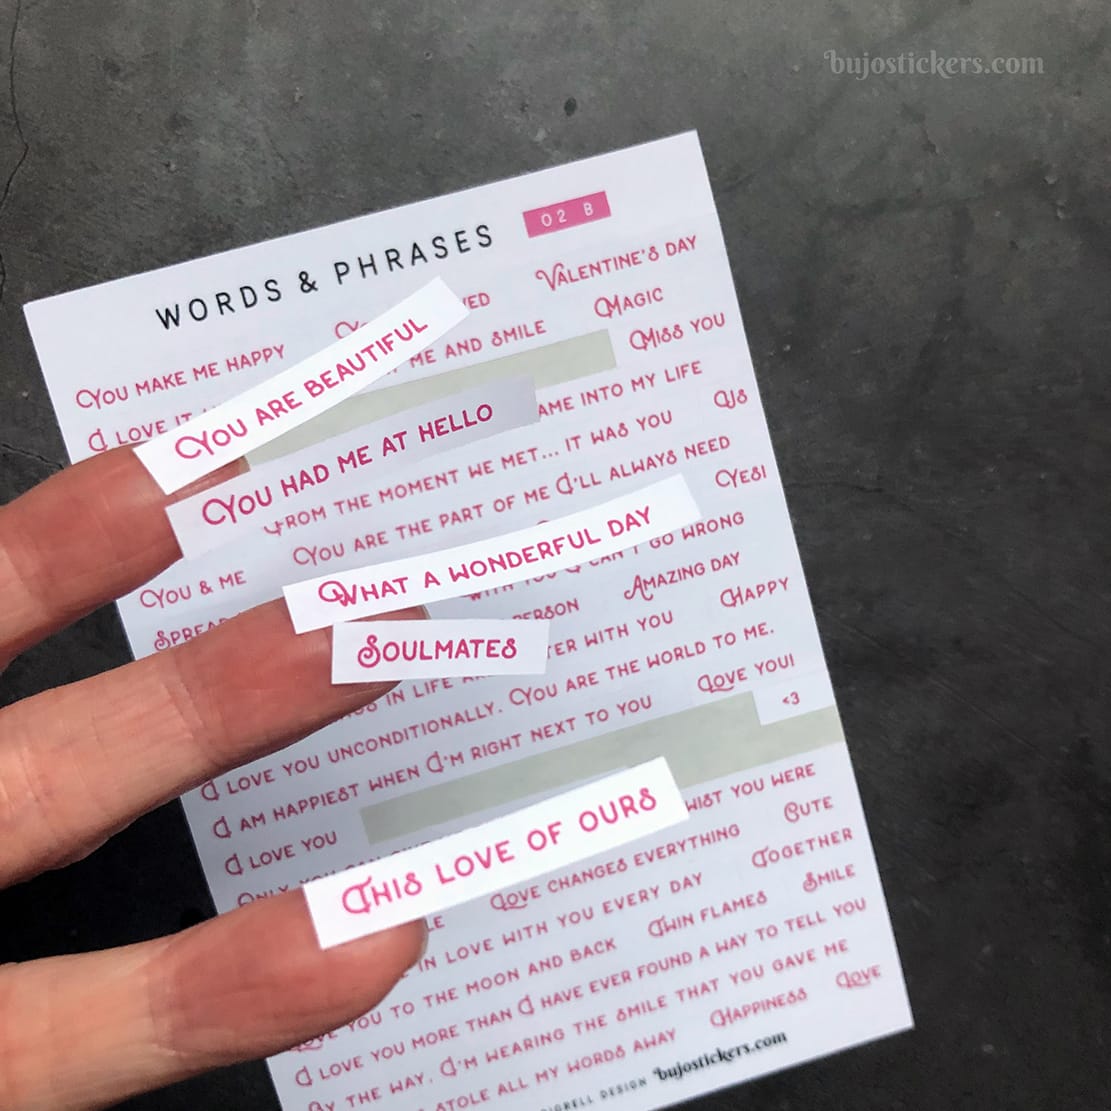 bujostickers.com
WORDS & PHRASES 02 B
VALENTINE'S DAY
YOU MAKE ME HAPPY
ME AND SMILE MAGIC
I LOVE IT MISS YOU
YOU ARE BEAUTIFUL
YOU HAD ME AT HELLO
AME INTO MY LIFE
FROM THE MOMENT WE MET... IT WAS YOU US
YOU ARE THE PART OF ME I'LL ALWAYS NEED
YOU & ME YES!
WHAT A WONDERFUL DAY
GO WRONG
PERSON AMAZING DAY
SOULMATES
TER WITH YOU HAPPY
IN LIFE
I LOVE YOU UNCONDITIONALLY. YOU ARE THE WORLD TO ME.
I AM HAPPIEST WHEN I'M RIGHT NEXT TO YOU LOVE YOU!
I LOVE YOU <3
THIS LOVE OF OURS
WIST YOU WERE
LOVE CHANGES EVERYTHING CUTE
IN LOVE WITH YOU EVERY DAY TOGETHER
LOVE YOU TO THE MOON AND BACK TWIN FLAMES SMILE
I LOVE YOU MORE THAN I HAVE EVER FOUND A WAY TO TELL YOU
BY THE WAY, I'M WEARING THE SMILE THAT YOU GAVE ME
STOLE ALL MY WORDS AWAY HAPPINESS LOVE
DESIGN bujostickers.com